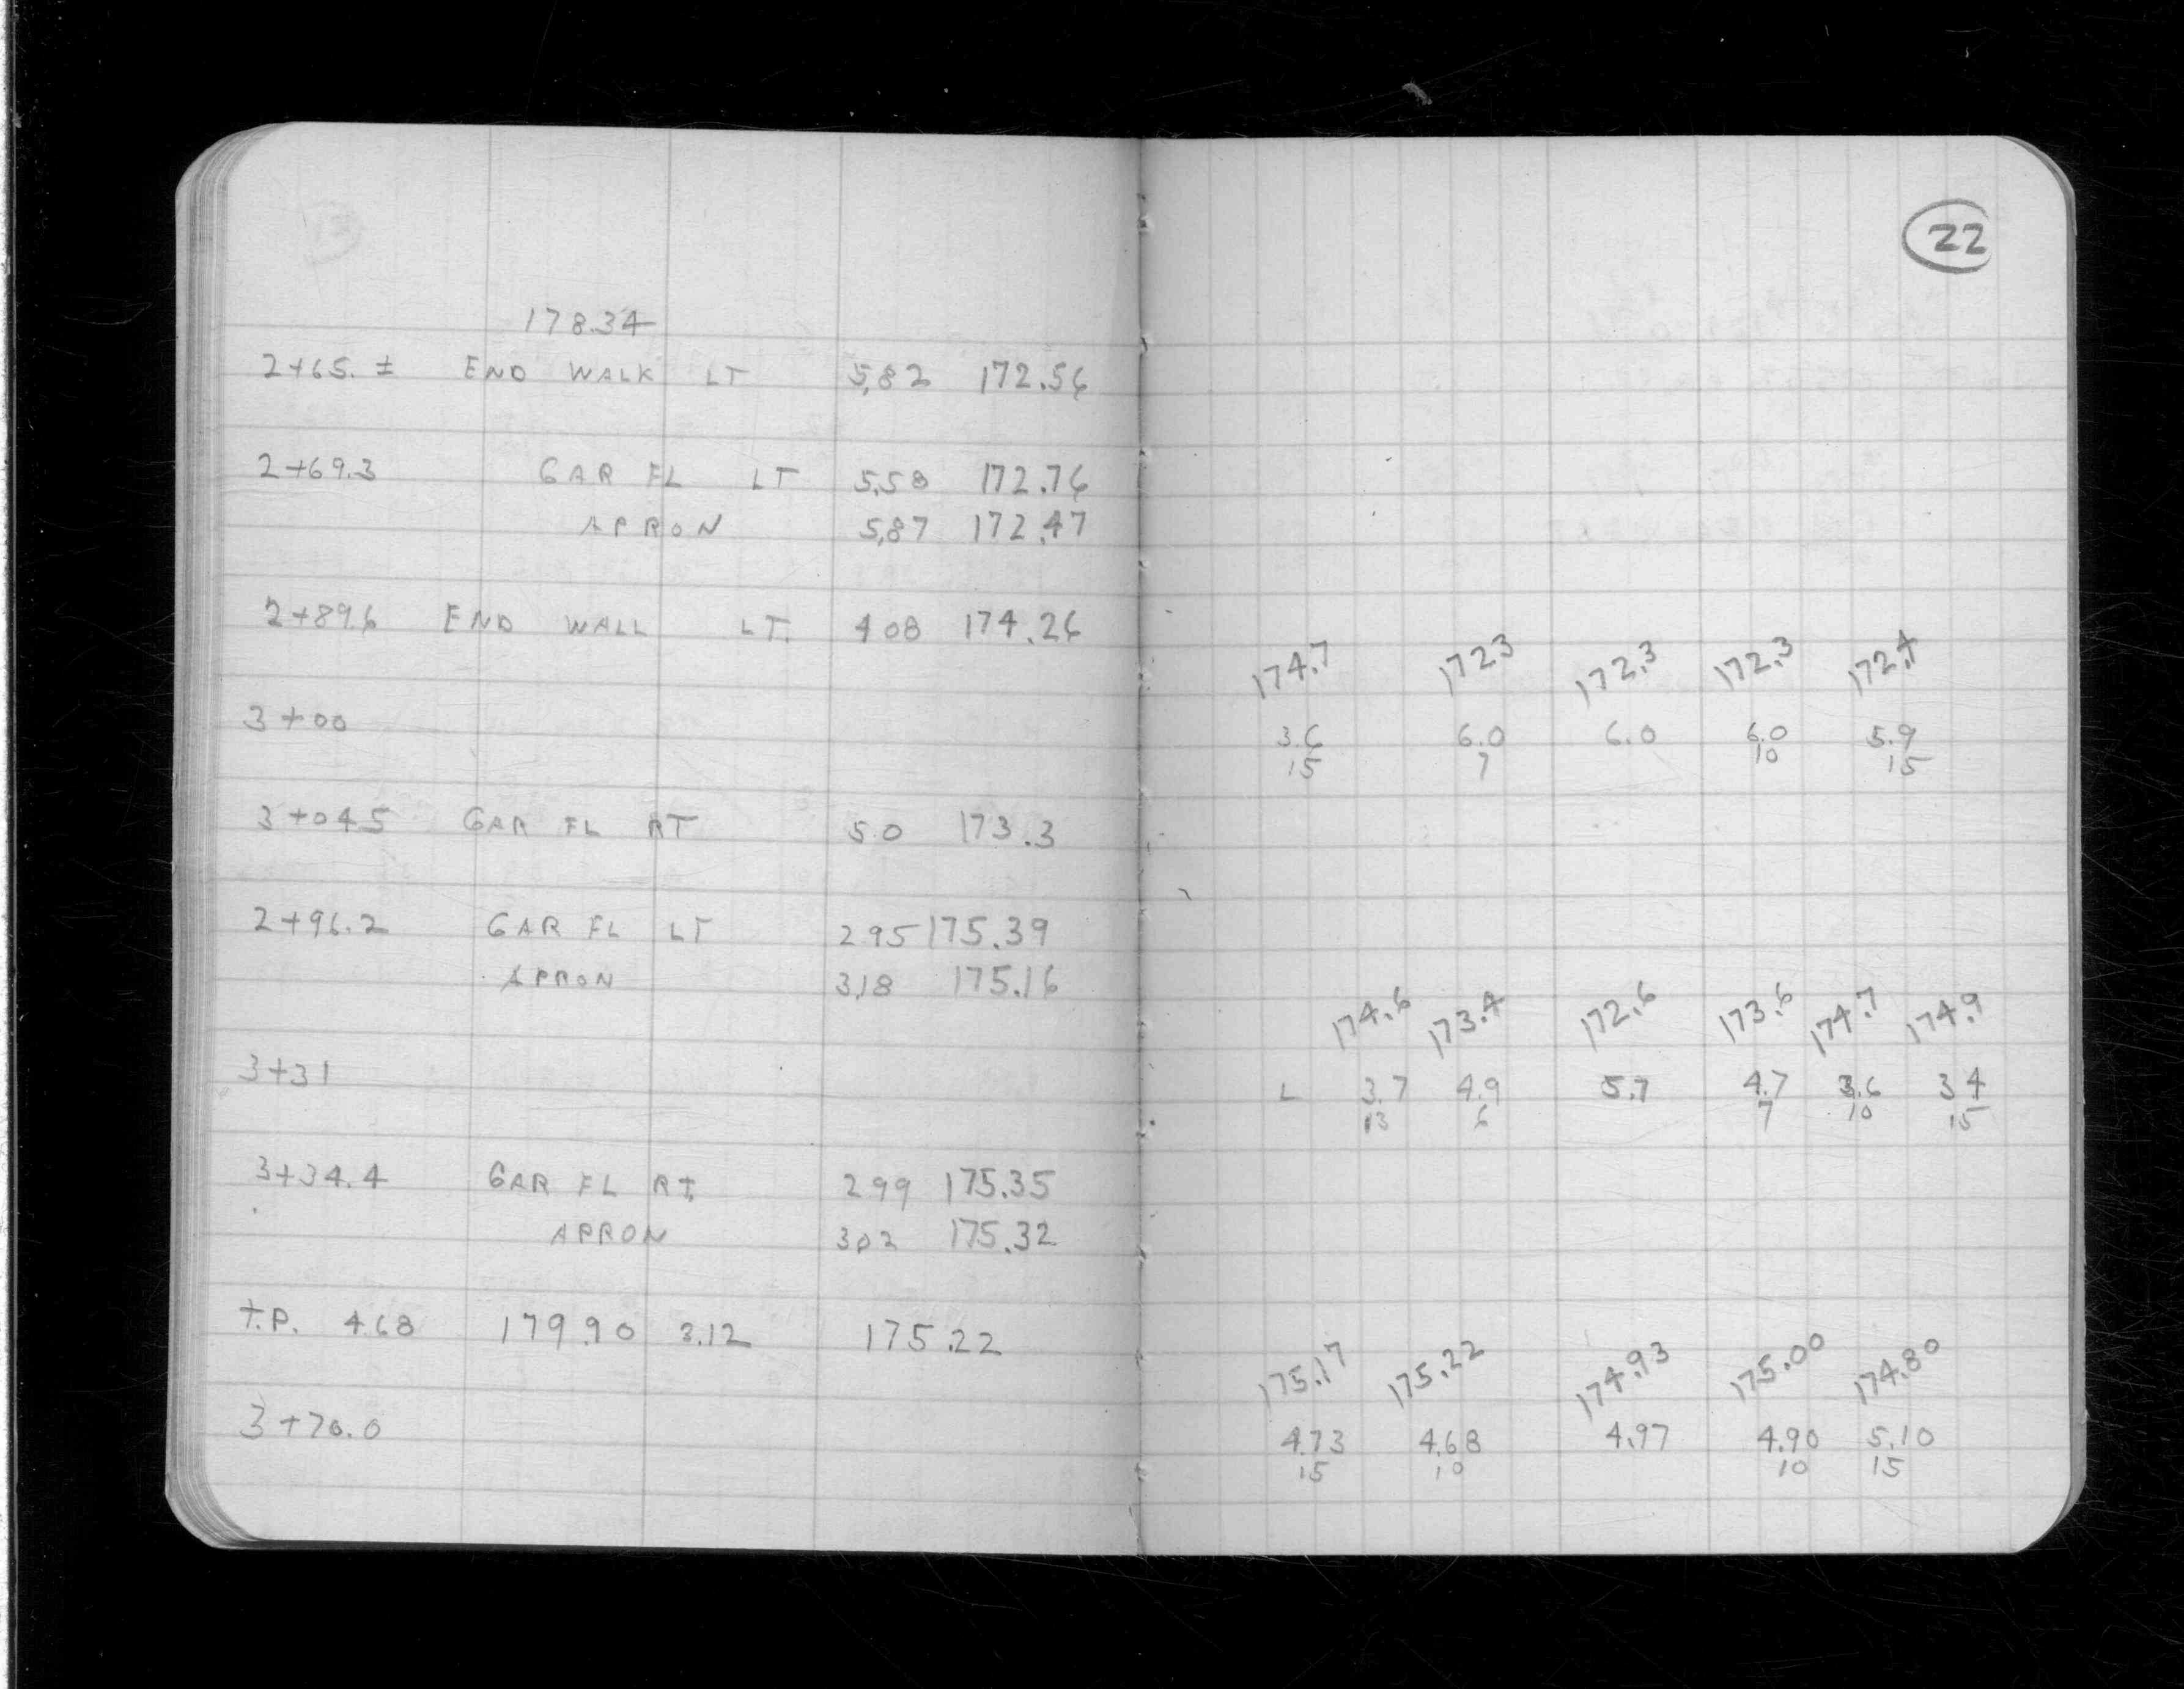 178.34
2+65. ± END WALK LT 5.82 172.56
2+69.3 GAR FL LT 5.58 172.76
APRON 5.87 172.47
2+89.6 END WALL LT. 4 08 174.26
3+00
3+04.5 GAR FL RT 5.0 173.3
2+96.2 GAR FL LT 2 95 175.39
APRON 3.18 175.16
3+31
3+34.4 GAR FL RT. 2 99 175.35
APRON 3.02 175.32
T.P. 4.68 179.90 3.12 175.22
3+70.0
22
174.7 172.3 172.3 172.3 172.4
3.6 6.0 6.0 6.0 5.9
15 7 10 15
174.6 173.4 172.6 173.6 174.7 174.9
L 3.7 4.9 5.7 4.7 3.6 3 4
13 6 7 10 15
175.17 175.22 174.93 175.00 174.80
4.73 4.68 4.97 4.90 5.10
15 10 10 15